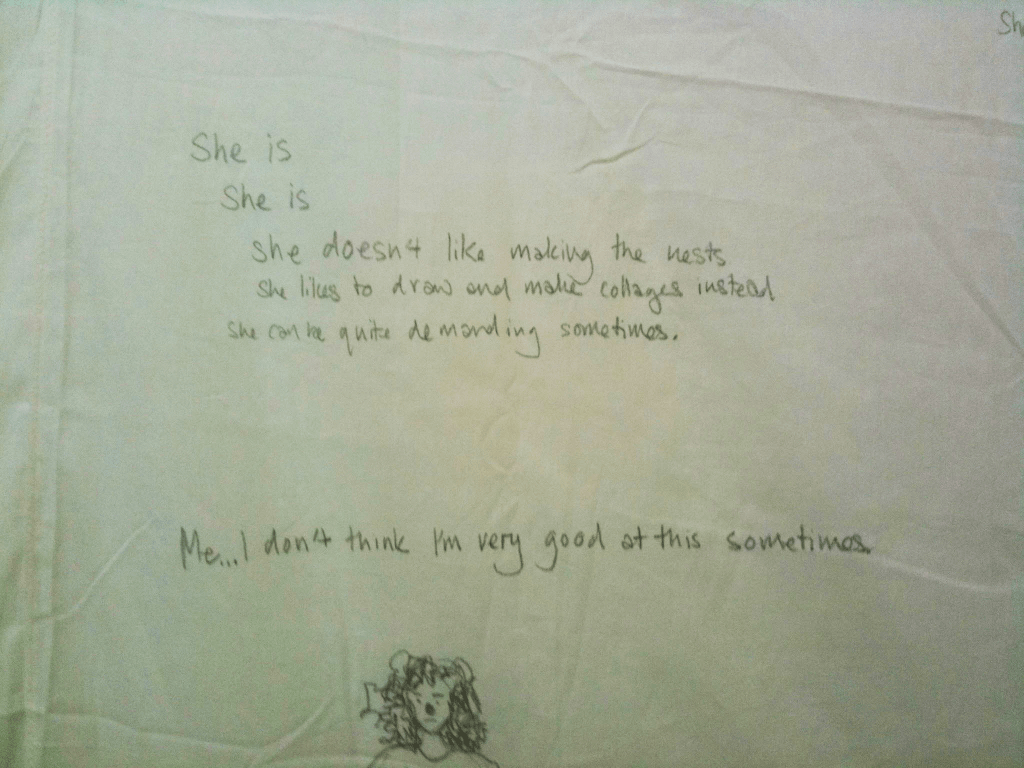 Sh
She is
She is
she doesn't like making the nests
she likes to draw and make collages instead
she can be quite demanding sometimes.
Me...I don't think I'm very good at this sometimes.